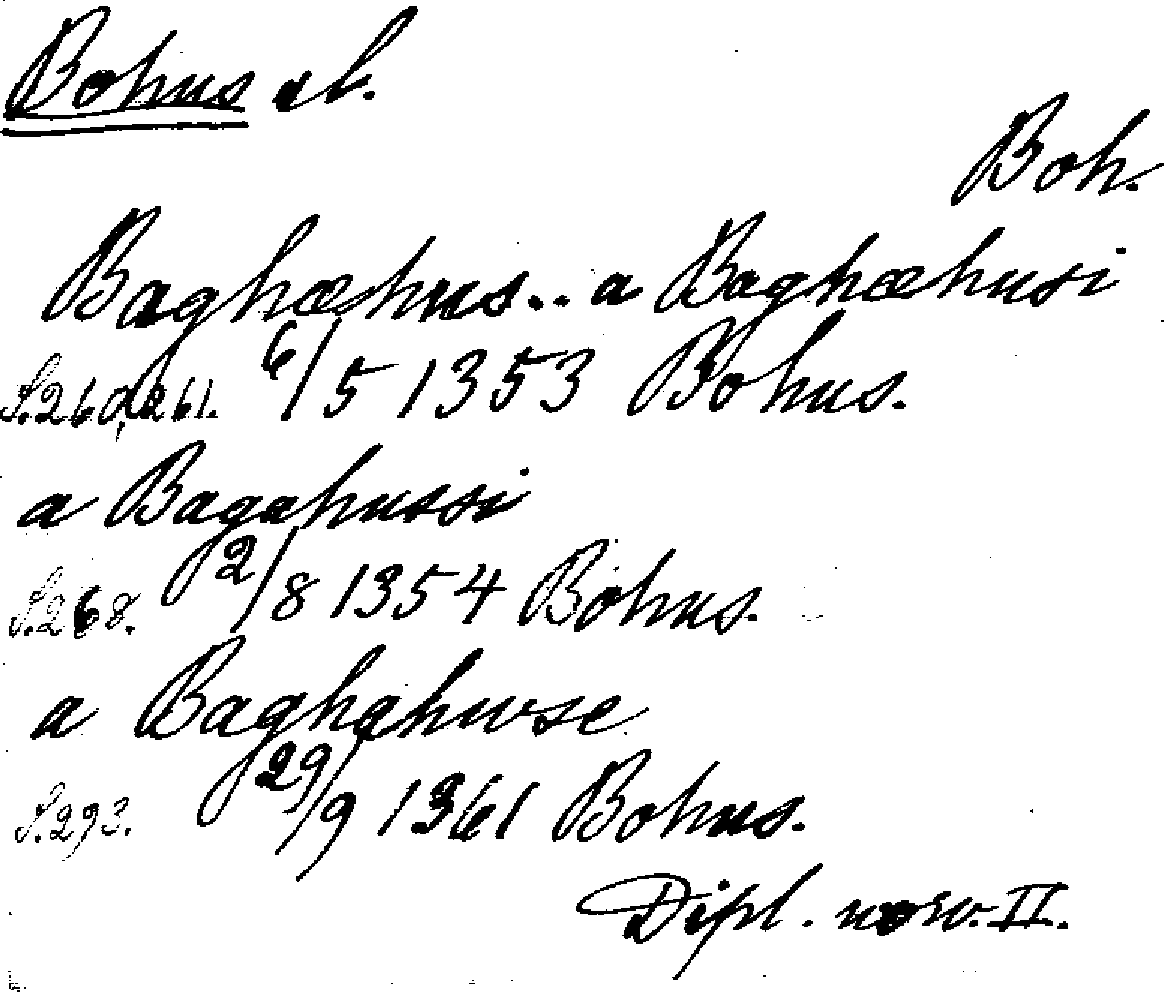 Bohus sl.
Boh.
Baghæhus... a Baghæhusi
S.260,261. 6/5 1353 Bohus.
a Bagahussi
S.268. 2/8 1354 Bohus.
a Baghahwse
S.293. 29/9 1361 Bohus.
Dipl. norv. II.